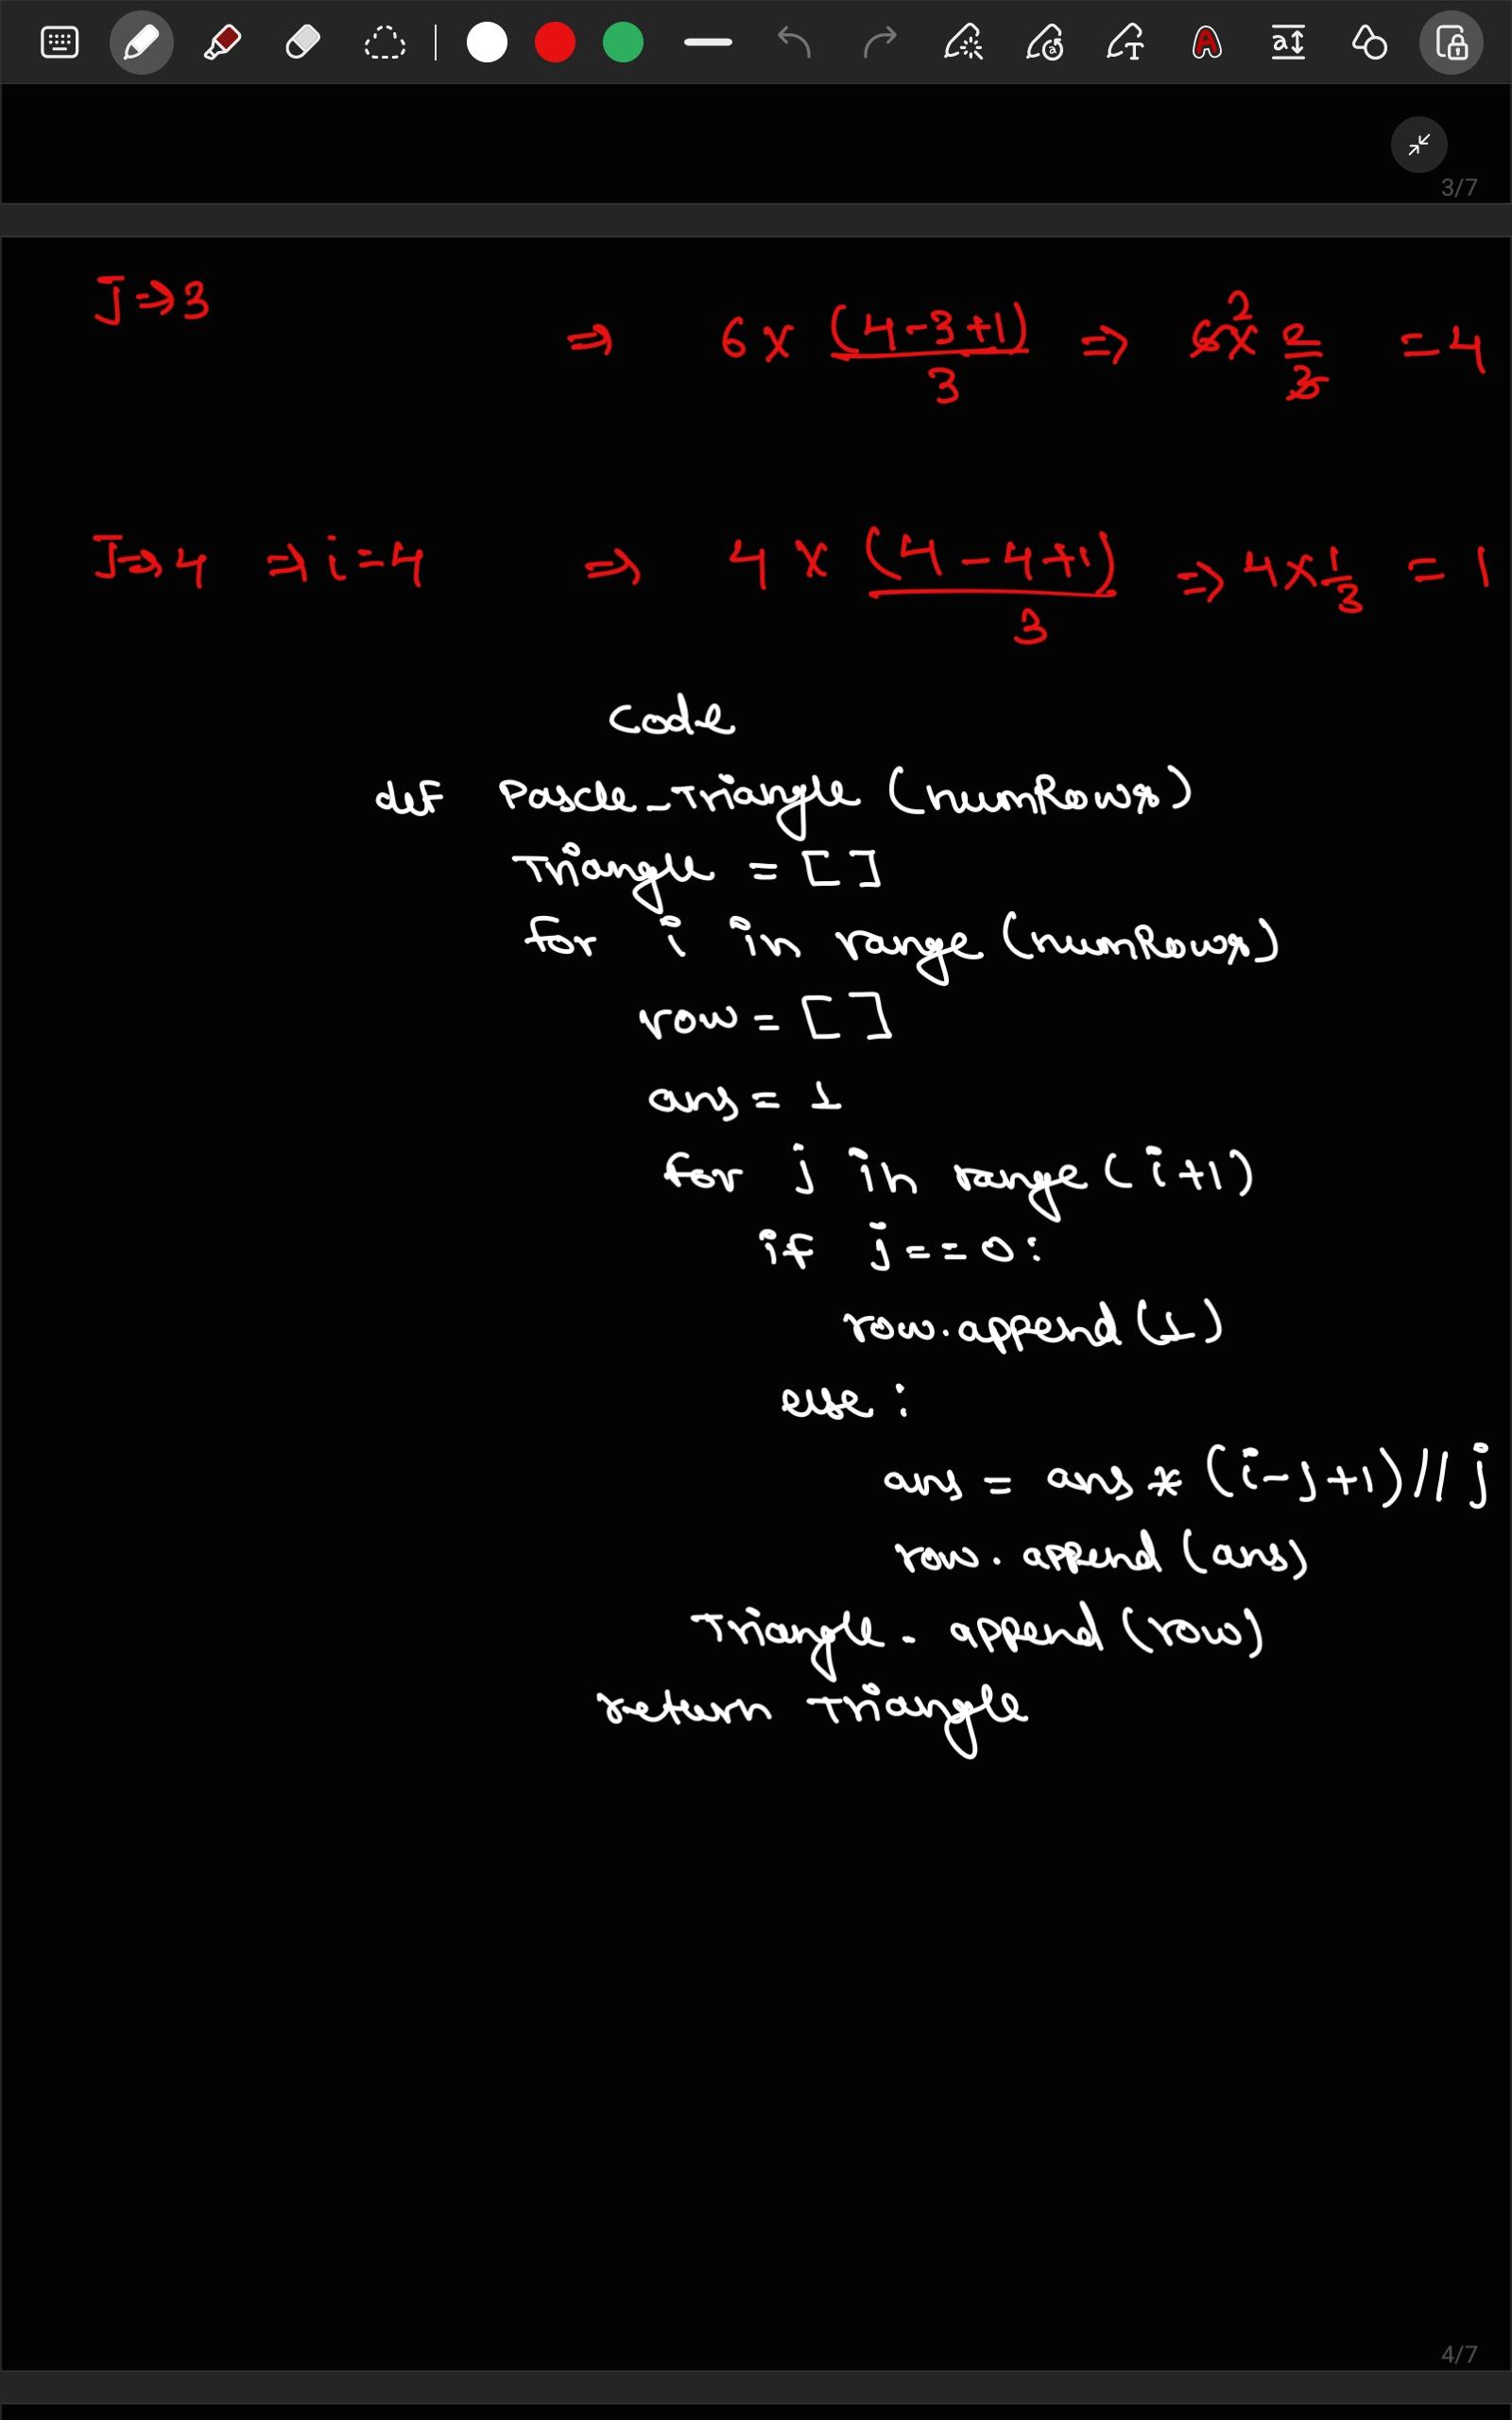 3/7
J⇒3
⇒ 6 x (4-3+1)/3 ⇒ 6x2 2/3 = 4
J⇒4 ⇒ i=4 ⇒ 4 x (4-4+1)/3 ⇒ 4x1/3 = 1
Code
def Pascle_Triangle (numRows)
Triangle = []
for i in range (numRows)
row = []
ans = 1
for j in range (i+1)
if j==0:
row.append(1)
else:
ans = ans * (i-j+1)//j
row.append(ans)
Triangle.append(row)
return Triangle
4/7